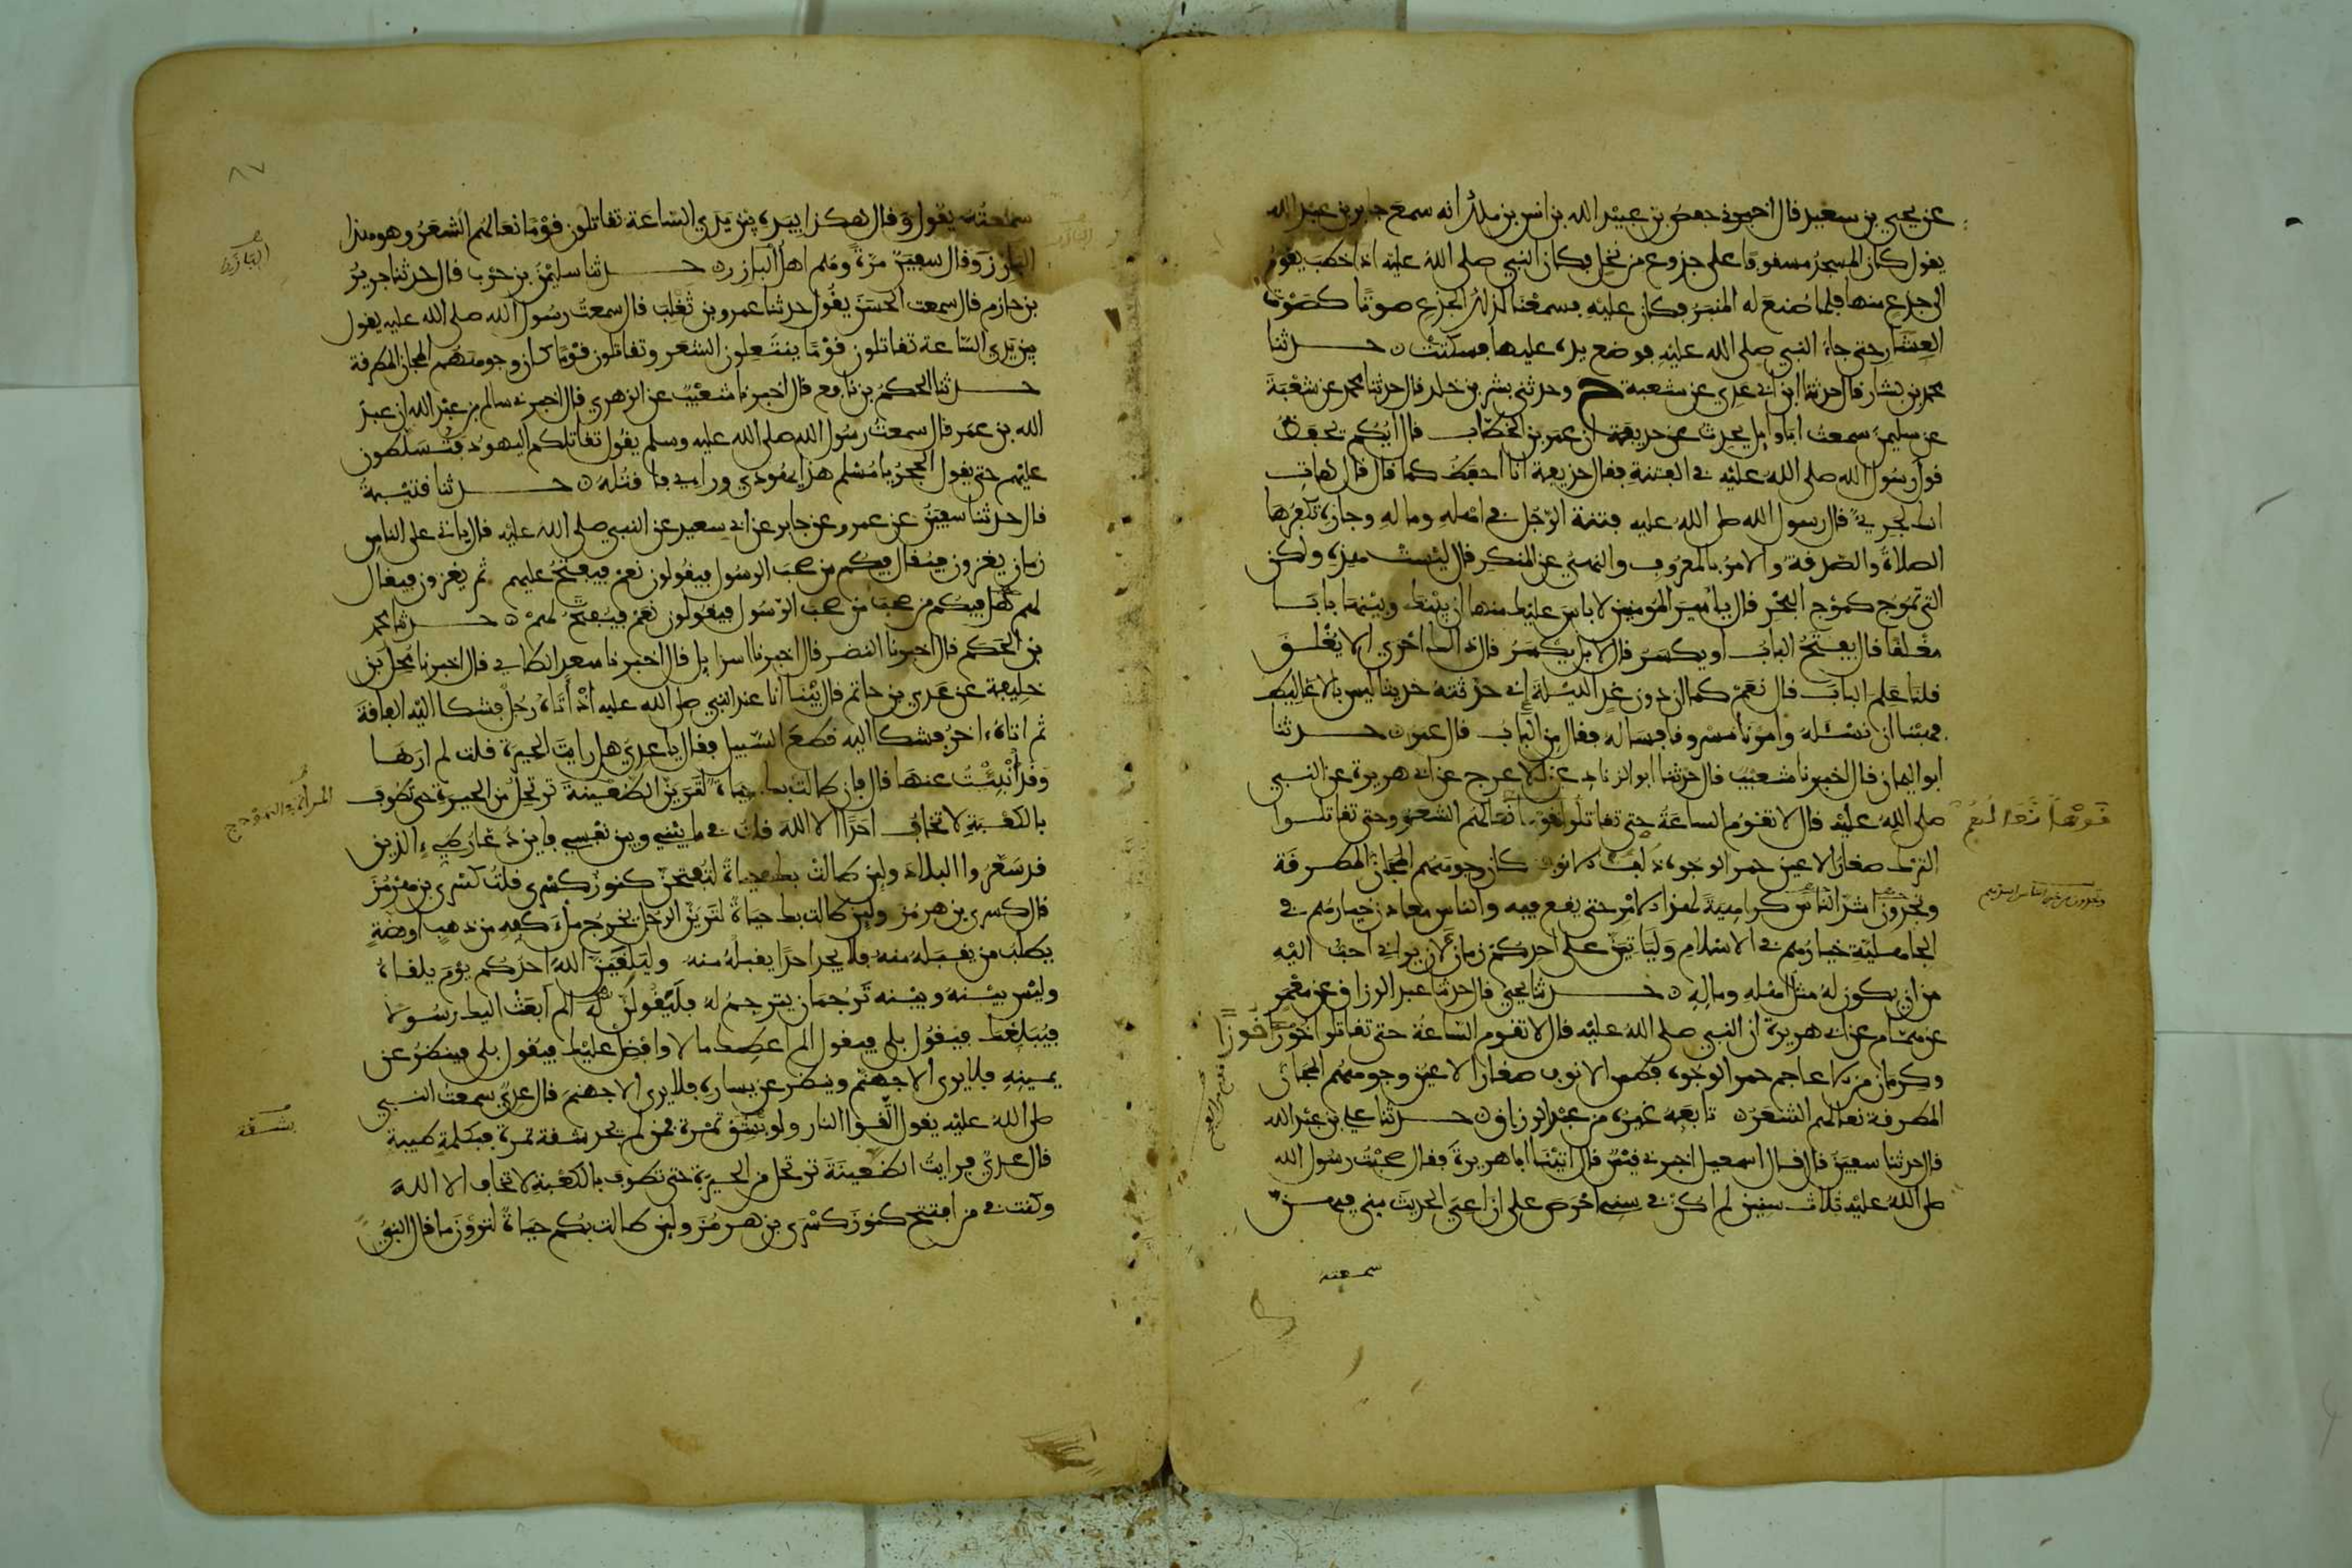 عن يحيى بن سعيد قال اخبرني حفص بن عبيد الله بن انس بن ملك انه سمع جابر بن عبد الله
يقول كان المسجد مسقوفا على جذوع من نخل فكان النبي صلى الله عليه اذا خطب يقوم
الى جذع منها فلما صنع له المنبر فكان عليه فسمعنا لذلك الجذع صوتا كصوت
العشار حتى جاء النبي صلى الله عليه فوضع يده عليها فسكنت ن حدثنا
محمد بن بشار قال حدثنا ابن ابي عدي عن شعبة ح وحدثني بشر بن خلد قال حدثنا محمد عن شعبة
عن سليمن سمعت ابا وايل يحدث عن حذيفة ان عمر بن الخطاب قال ايكم يحفظ
قول رسول الله صلى الله عليه في الفتنة فقال حذيفة انا احفظ كما قال قال هات
انك لجريء قال رسول الله صلى الله عليه فتنة الرجل في اهله وماله وجاره تكفرها
الصلاة والصدقة والامر بالمعروف والنهي عن المنكر قال ليست هذه ولكن
التي تموج كموج البحر قال يا امير المومنين لا باس عليك منها ان بينك وبينها بابا
مغلقا قال يفتح الباب او يكسر قال لا بل يكسر قال ذاك احرى الا يغلق
قلنا علم الباب قال نعم كما ان دون غد الليلة اني حدثته حديثا ليس بالاغاليط
فهبنا ان نسئله وامرنا مسروقا فساله فقال من الباب قال عمر ن حدثنا
ابو اليمان قال اخبرنا شعيب قال حدثنا ابو الزناد عن الاعرج عن ابي هريرة عن النبي
صلى الله عليه قال لا تقوم الساعة حتى تقاتلوا قوما نعالهم الشعر وحتى تقاتلوا
قوما نعالهم
الترك صغار الاعين حمر الوجوه ذلف الانوف كان وجوههم المجان المطرقة
وتجدون اشد الناس كراهية لهذا الامر حتى يقع فيه والناس معادن خيارهم في
وتجدون من خير الناس اشدهم
الجاهلية خيارهم في الاسلام ولياتين على احدكم زمان لان يراني احب اليه
من ان يكون له مثل اهله وماله ن حدثنا يحيى قال حدثنا عبد الرزاق عن معمر
عن همام عن ابي هريرة ان النبي صلى الله عليه قال لا تقوم الساعة حتى تقاتلوا خوزا
خوزا
وكرمان من الاعاجم حمر الوجوه فطس الانوف صغار الاعين وجوههم المجان
المطرقة نعالهم الشعر ن تابعه غيره عن عبد الرزاق ن حدثنا علي بن عبد الله
قال حدثنا سفين قال قال اسمعيل اخبرني قيس قال اتينا ابا هريرة فقال صحبت رسول الله
صلى الله عليه ثلاث سنين لم اكن في سني احرص على ان اعي الحديث مني فيهن
سمعته
٨٧
سمعته يقول وقال هكذا بيده بين يدي الساعة تقاتلون قوما نعالهم الشعر وهو هذا
البارز وقال سفين مرة وهم اهل البازر ن حدثنا سليمن بن حرب قال حدثنا جرير
البازر
بن حازم قال سمعت الحسن يقول حدثنا عمرو بن تغلب قال سمعت رسول الله صلى الله عليه يقول
بين يدي الساعة تقاتلون قوما ينتعلون الشعر وتقاتلون قوما كان وجوههم المجان المطرقة
حدثنا الحكم بن نافع قال اخبرنا شعيب عن الزهري قال اخبرني سالم بن عبد الله ان عبد
الله بن عمر قال سمعت رسول الله صلى الله عليه وسلم يقول تقاتلكم اليهود فتسلطون
عليهم حتى يقول الحجر يا مسلم هذا يهودي ورايي فاقتله ن حدثنا قتيبة
قال حدثنا سفين عن عمرو عن جابر عن ابي سعيد عن النبي صلى الله عليه قال ياتي على الناس
زمان يغزون فيقال فيكم من صحب الرسول فيقولون نعم فيفتح عليهم ثم يغزون فيقال
لهم هل فيكم من صحب من صحب الرسول فيقولون نعم فيفتح لهم ن حدثنا محمد
بن الحكم قال اخبرنا النضر قال اخبرنا اسرايل قال اخبرنا سعد الطاي قال اخبرنا محل بن
خليفة عن عدي بن حاتم قال بينا انا عند النبي صلى الله عليه اذ اتاه رجل فشكا اليه الفاقة
ثم اتاه اخر فشكا اليه قطع السبيل فقال يا عدي هل رايت الحيرة قلت لم ارها
وقد انبئت عنها قال فان طالت بك حياة لترين الظعينة ترتحل من الحيرة حتى تطوف
المراة في الهودج
بالكعبة لا تخاف احدا الا الله قلت في ما بيني وبين نفسي فاين ذعار طيء الذين
قد سعروا البلاد ولين طالت بك حياة لتفتحن كنوز كسرى قلت كسرى بن هرمز
قال كسرى بن هرمز ولين طالت بك حياة لترين الرجل يخرج ملء كفه من ذهب او فضة
يطلب من يقبله منه فلا يجد احدا يقبله منه وليلقين الله احدكم يوم يلقاه
وليس بينه وبينه ترجمان يترجم له فليقولن له الم ابعث اليك رسولا
فيبلغك فيقول بلى فيقول الم اعطك مالا وافضل عليك فيقول بلى فينظر عن
يمينه فلا يرى الا جهنم وينظر عن يساره فلا يرى الا جهنم قال عدي سمعت النبي
صلى الله عليه يقول اتقوا النار ولو بشق تمرة فمن لم يجد شقة تمرة فبكلمة طيبة
بشقة
قال عدي فرايت الظعينة ترتحل من الحيرة حتى تطوف بالكعبة لا تخاف الا الله
وكنت في من افتتح كنوز كسرى بن هرمز ولين طالت بكم حياة لترون ما قال النبي